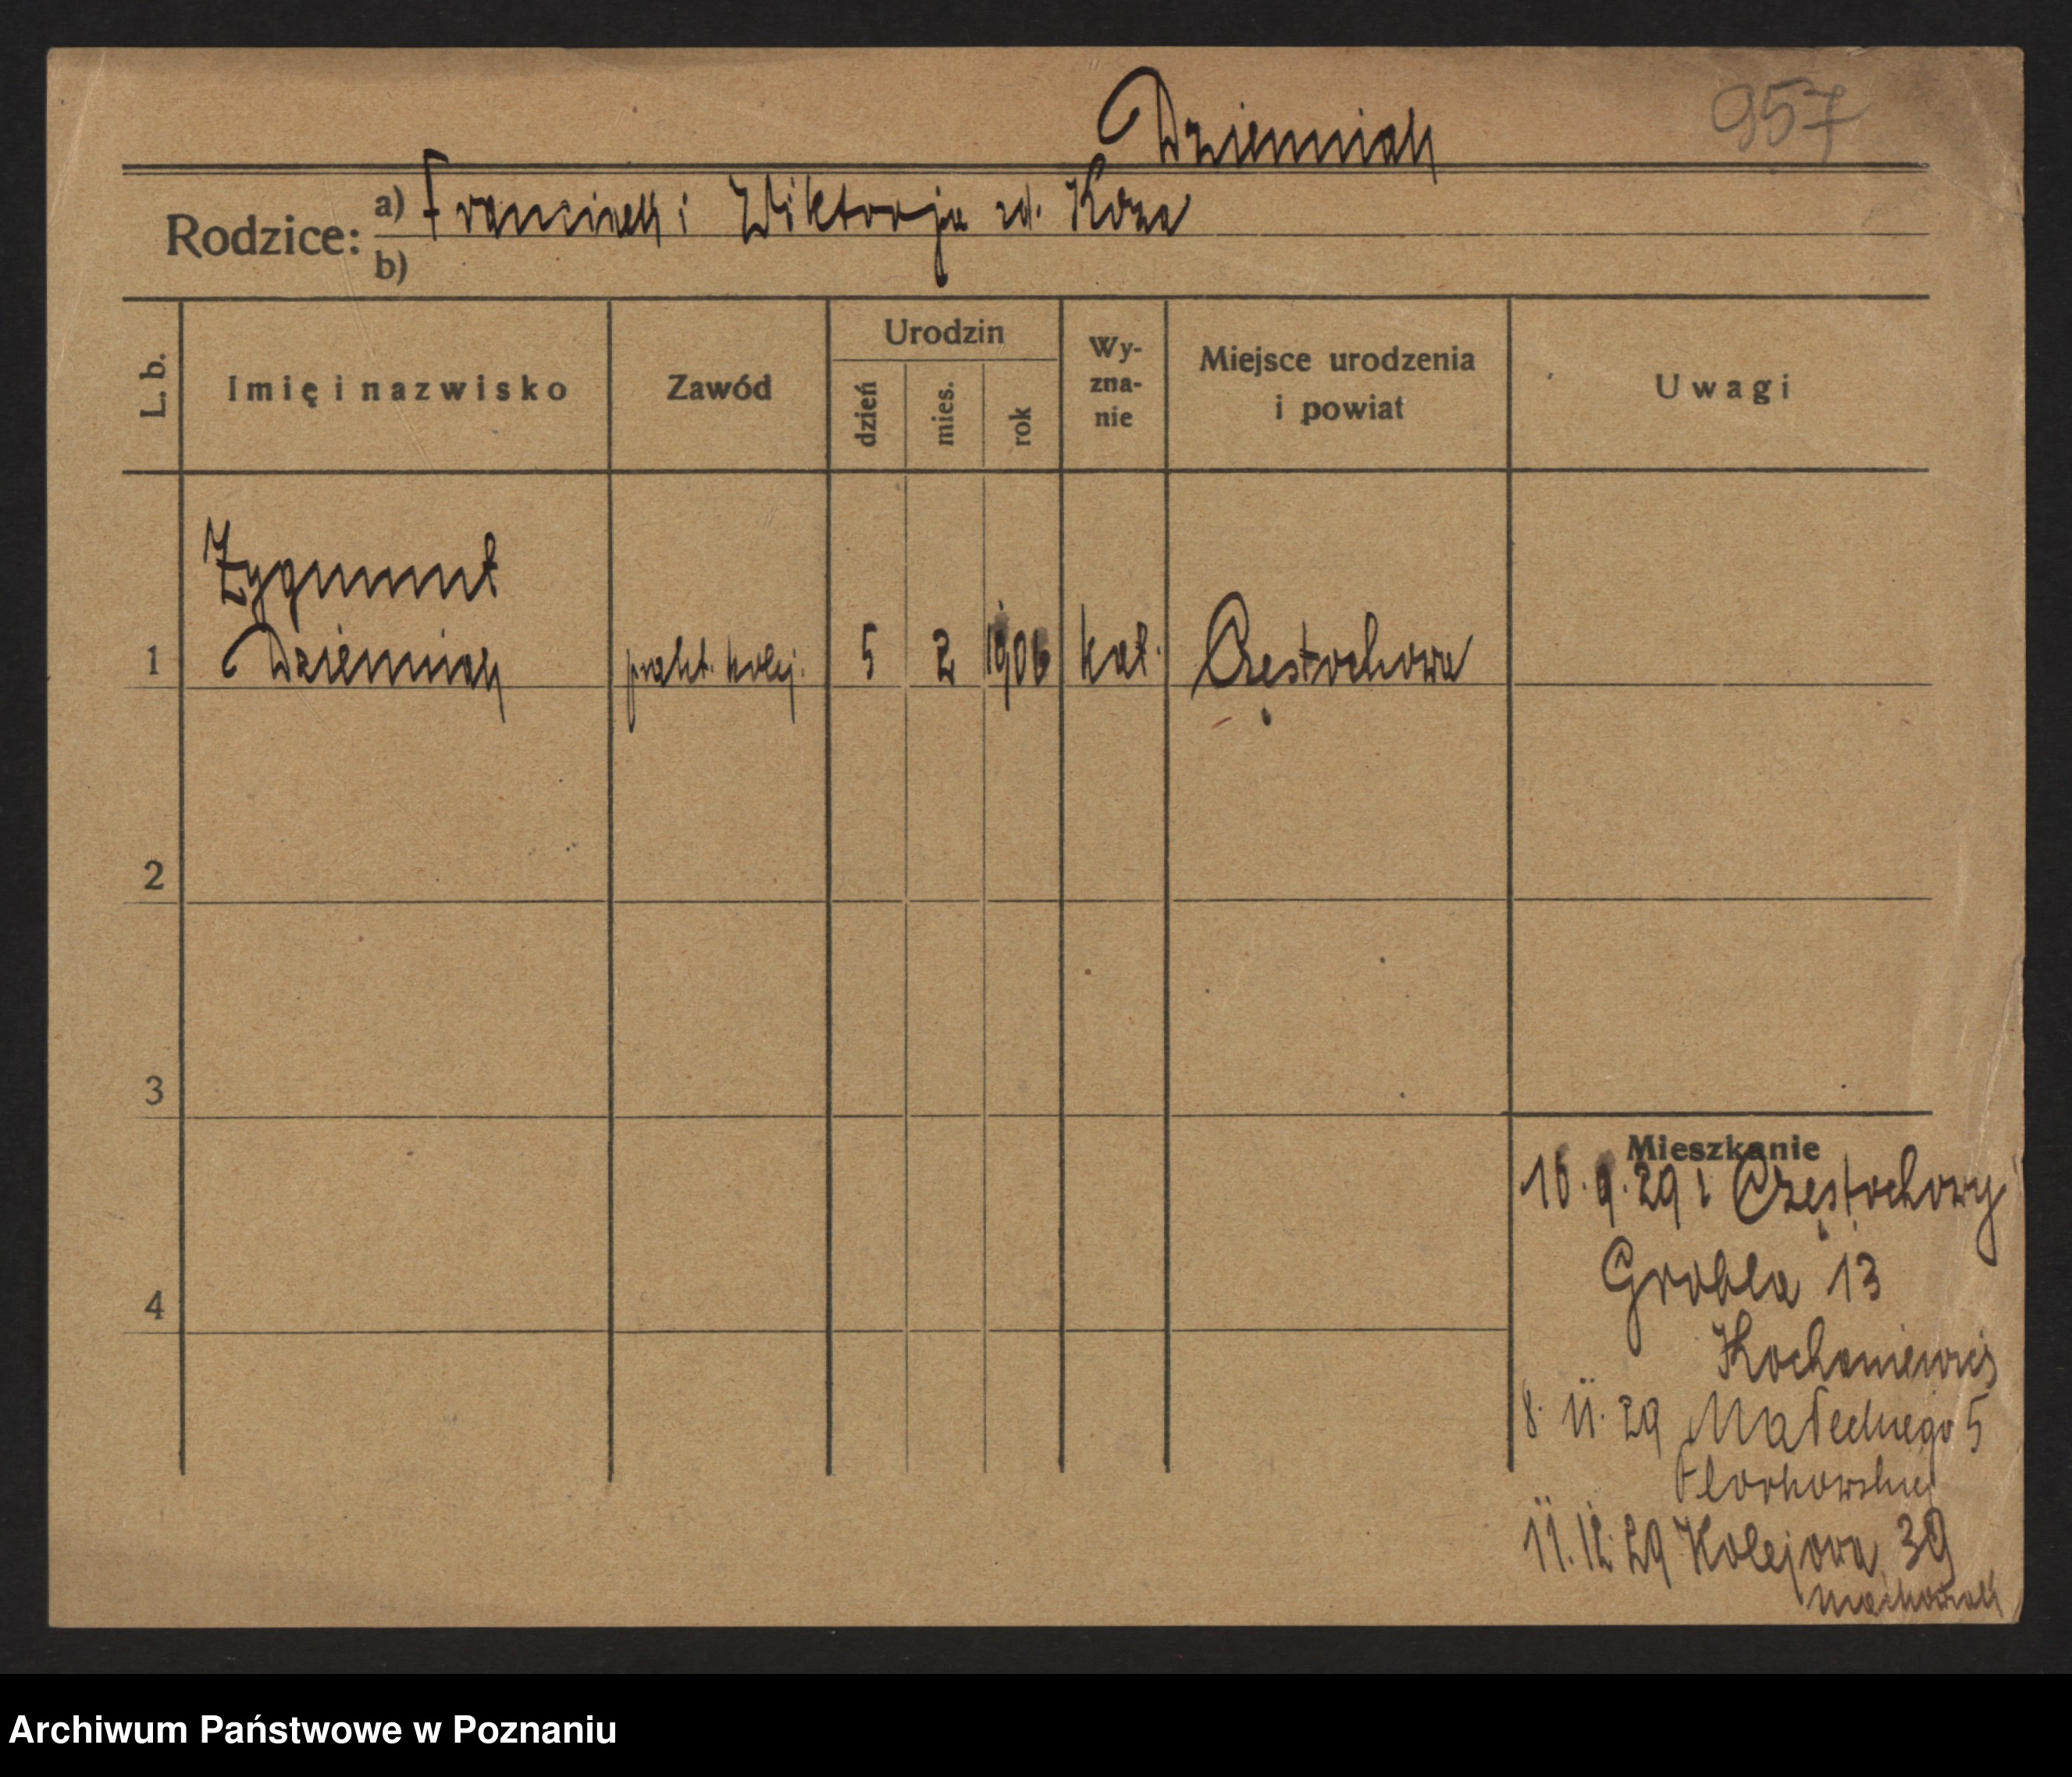 957
Dzienniak
Rodzice: a) Franciszek i Wiktorja zd. Koza
b)
L. b. Imię i nazwisko Zawód Urodzin dzień mies. rok Wy-zna-nie Miejsce urodzenia i powiat Uwagi
Zygmunt
1 Dzienniak prakt. kolej. 5 2 1906 kat. Częstochowa
2
3
4
Mieszkanie
16.9.29 z Częstochowy
Grobla 13
Kochaniewicz
8.11.29 Małeckiego 5
11.12.29 Kolejowa 39
Machowiak
Archiwum Państwowe w Poznaniu